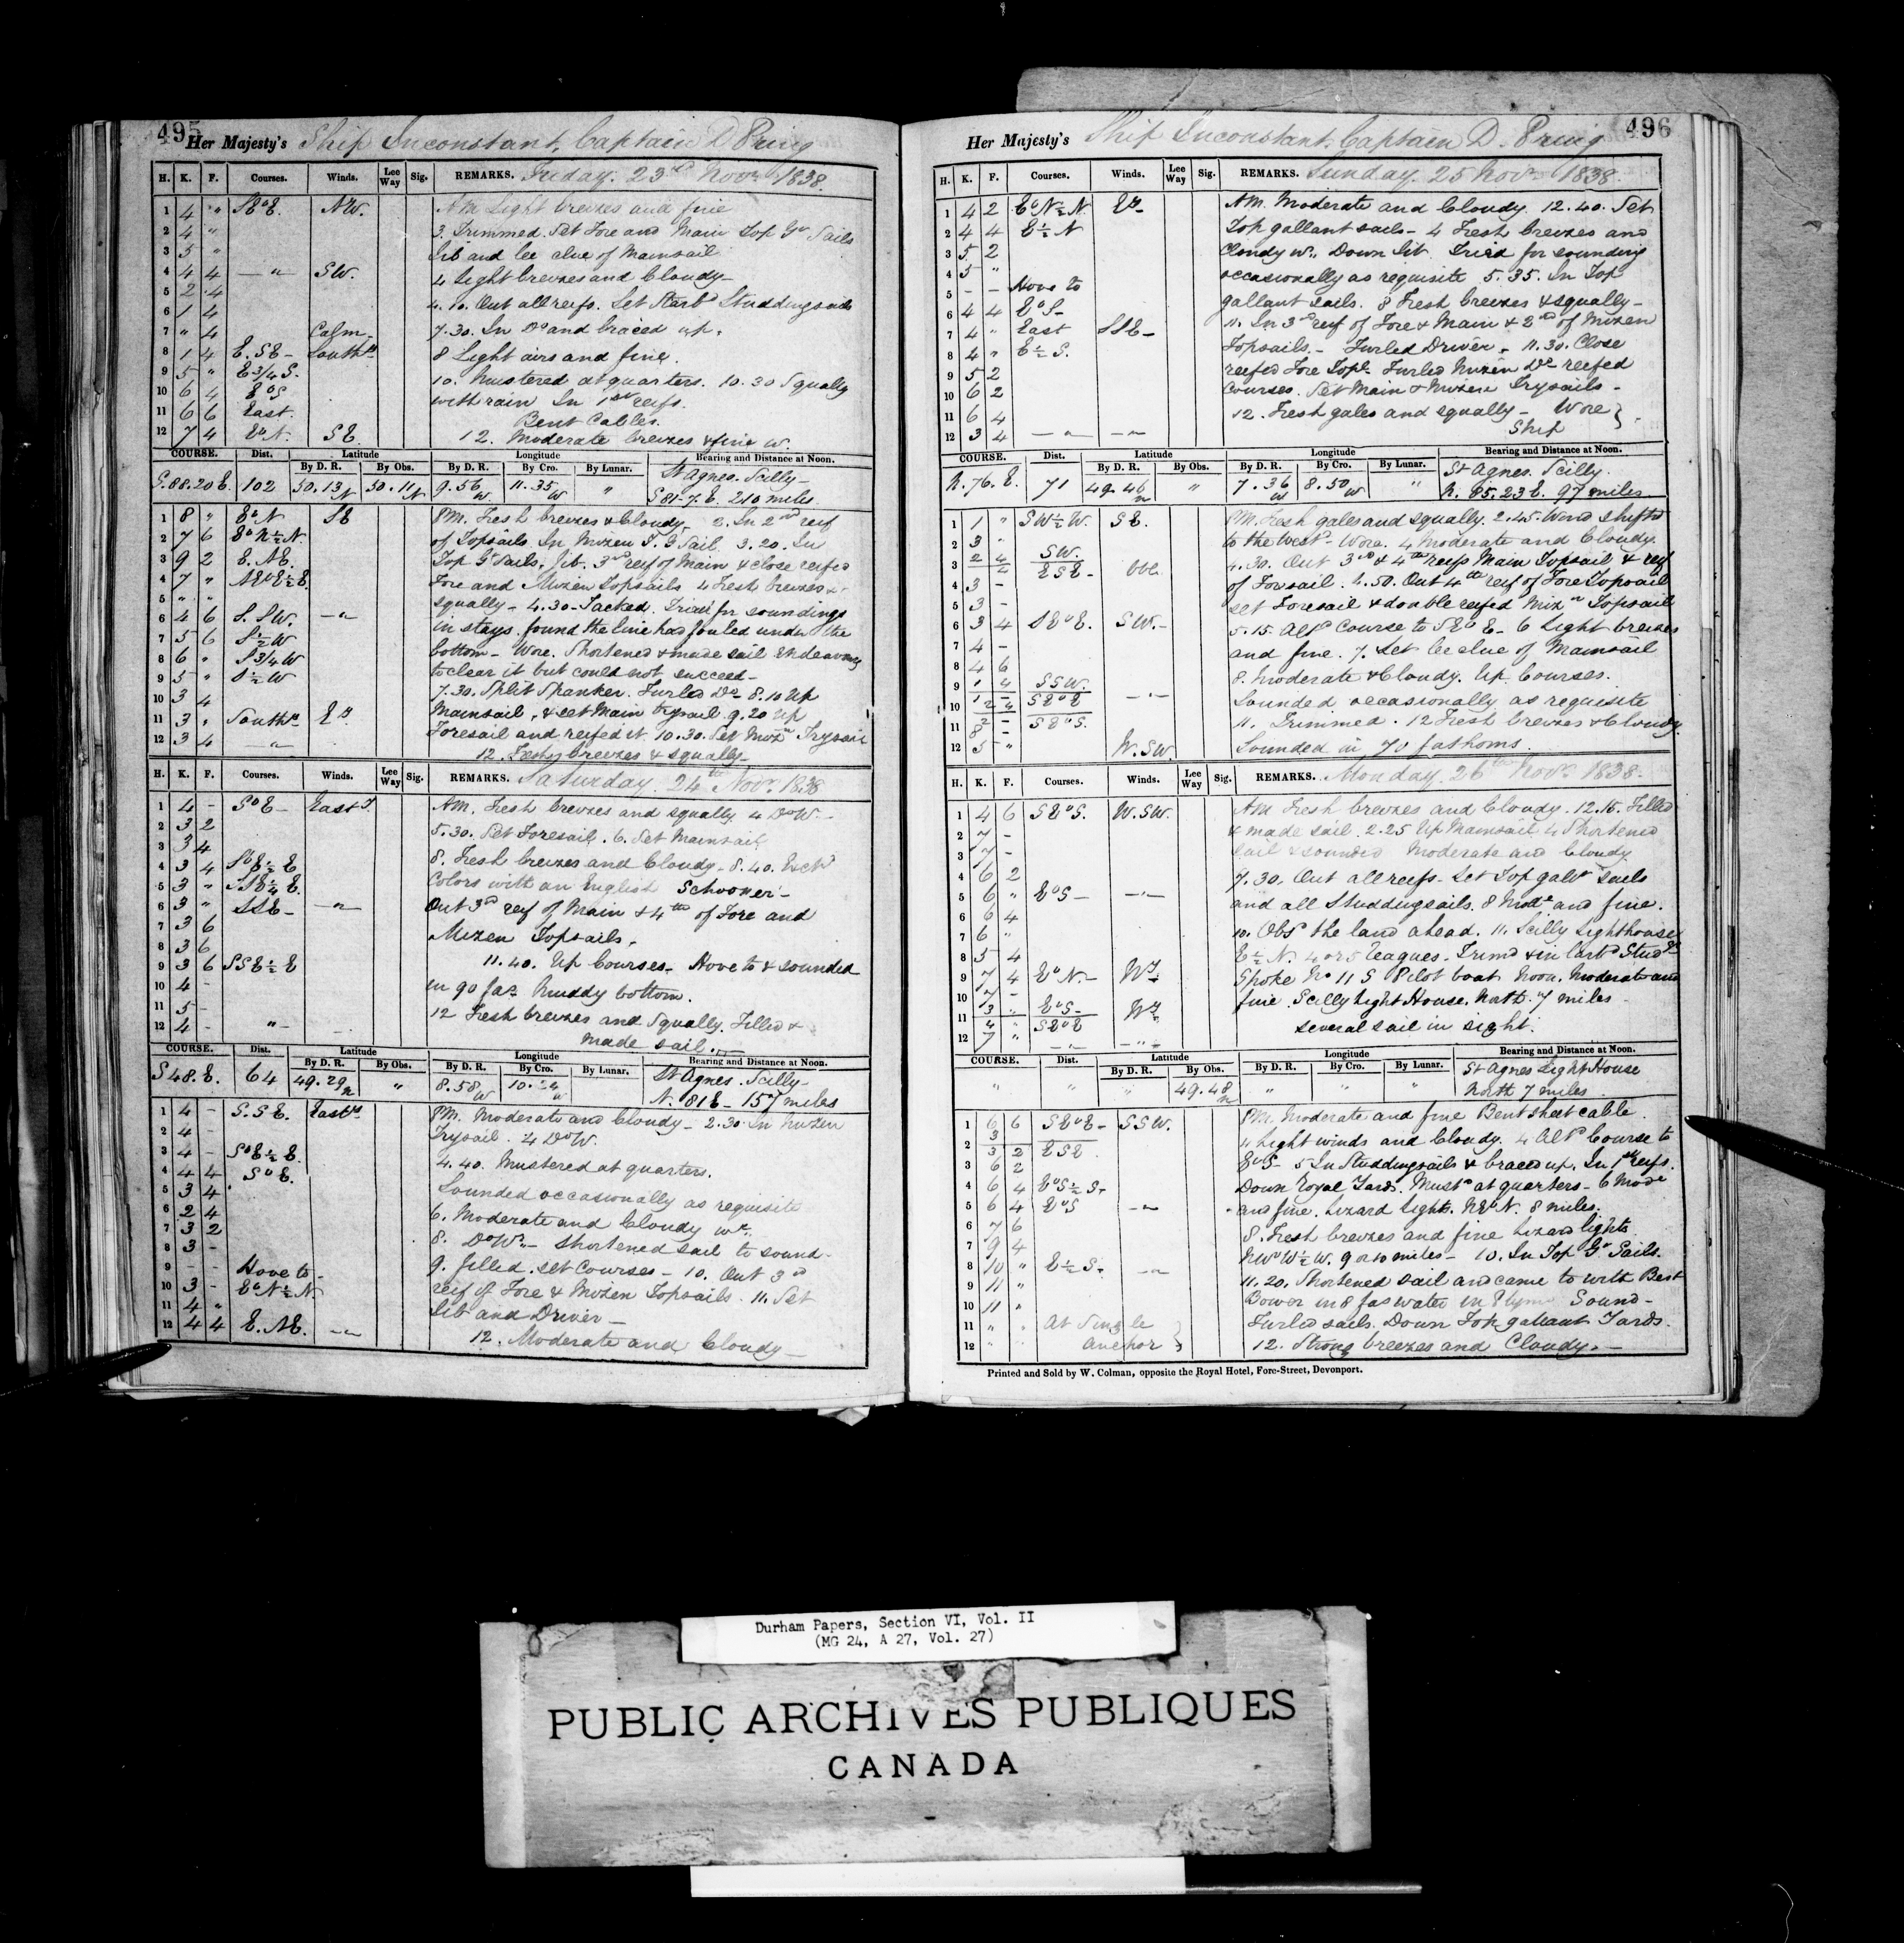 495
Her Majesty's Ship Inconstant, Captain D Pring
H. K. F. Courses. Winds. Lee Way Sig. REMARKS. Friday. 23rd Novr 1838.
1 4 " SEbE. NW. AM Light breezes and fine
2 4 " 3. Trimmed. Set Fore and Main Top Gt Sails
3 5 " Jib and lee clue of Mainsail
4 4 4 — " SW. 4 Light breezes and Cloudy—
5 2 4 4.10. Out all reefs. Set Starbd Studdingsails
6 1 4
7 " 4 Calm 7.30. In Do and braced up.
8 1 4 E. SE — South 8 Light airs and fine.
9 5 " E 3/4 S.
10 6 4 EbS 10. Mustered at quarters. 10.30 Squally
11 6 6 East. with rain In 1st reefs.
Bent Cables.
12 7 4 EbN. SE 12. Moderate breezes & fine w.
COURSE. Dist. Latitude Longitude Bearing and Distance at Noon.
By D. R. By Obs. By D. R. By Cro. By Lunar. St Agnes. Scilly—
S.88.20 E. 102 50.13 N 50.11 N 9.56 W 11.35 W " S 81-7. E. 210 miles
1 8 " EbN SE PM. Fresh breezes & Cloudy— 2. In 2nd reef
2 7 6 EbN½N. of Topsails In Mizen T. G Sail. 3.20. In
3 9 2 E. NE. Top Gt Sails. Jib. 3rd reef of Main & close reefed
4 7 " NEbE½E Fore and Mizen Topsails 4 Fresh breezes &
5 " " squally— 4.30—Tacked. Tried for soundings
6 4 6 S. SW. —"— in stays. found the line had fouled under the
7 5 6 S½W bottom— Wore. Shortened & made sail Endeavoring
8 6 " S 3/4 W to clear it but could not succeed—
9 5 " S½W 7.30. Split Spanker. Furled Do. 8.10 Up
10 3 4 Mainsail, & set Main Trysail 9.20 Up
11 3 " South Foresail and reefed it 10.30. Set Mizn Trysail
12 3 4 —"— 12. Fresh breezes & squally—
H. K. F. Courses. Winds. Lee Way Sig. REMARKS. Saturday. 24th Novr 1838
1 4 - SbE — East AM. Fresh breezes and squally 4 Do W.—
2 3 2 5.30. Set Foresail. 6. Set Mainsail
3 3 4 8. Fresh breezes and Cloudy. 8.40. Exchd
4 3 4 SbE½E Colors with an English Schooner—
5 3 " SSE¼E
6 3 " SSE— —"— Out 3rd reef of Main & 4th of Fore and
7 3 6 Mizen Topsails.
8 3 6
9 3 6 SSE½E 11.40. Up Courses— Hove to & sounded
10 4 - in 90 fas Muddy bottom.
11 5 - 12 Fresh breezes and Squally. Filled &
12 4 - "— made sail.
COURSE. Dist. Latitude Longitude Bearing and Distance at Noon.
By D. R. By Obs. By D. R. By Cro. By Lunar. St Agnes. Scilly—
S 48. E. 64 49.29 N " 8.58 W N. 81 E— 157 miles
1 4 - S. SE. East PM. Moderate and Cloudy— 2.30. In Mizen
2 4 - Trysail. 4 Do W.
3 4 - SbE½E. 4.40. Mustered at quarters.
4 4 4 SbE. Sounded occasionally as requisite
5 3 4
6 2 4 6. Moderate and Cloudy wr.
7 3 2 8. Do Wr— shortened sail to sound—
8 3 -
9 - - Hove to— 9. filled. set Courses— 10. Out 3rd
10 3 - EbN½N reef of Fore & Mizen Topsails. 11. Set
11 4 " Jib and Driver—
12 4 4 E. NE. —"— 12. Moderate and Cloudy—
496
Her Majesty's Ship Inconstant, Captain D. Pring
H. K. F. Courses. Winds. Lee Way Sig. REMARKS. Sunday. 25 Novr 1838.
1 4 2 EbN½N AM. Moderate and Cloudy. 12.40. Set
2 4 4 E½N Top gallant sails— 4 Fresh breezes and
3 5 2 Cloudy w.. Down Jib. Tried for sounding
4 5 " occasionally as requisite 5.35. In Top
5 - - Hove to gallant sails. 8 Fresh breezes & squally—
6 4 4 EbS— 11. In 3rd reef of Fore & Main & 2nd of Mizen
7 4 " East SSE— Topsails.— Furled Driver. 11.30. Close
8 4 " E½S. reefed Fore Topl. Furled Mizen Do reefed
9 5 2 Courses. Set Main & Mizen Trysails—
10 6 2
11 6 4 12. Fresh gales and squally— Wore
12 3 4 —"— —"— Ship
COURSE. Dist. Latitude Longitude Bearing and Distance at Noon.
By D. R. By Obs. By D. R. By Cro. By Lunar. St Agnes. Scilly.
N. 76. E. 71 49.46 N " 7.36 W 8.50 W " N. 85.23 E. 97 miles
1 1 " SW½W. SE. PM. Fresh gales and squally. 2.45. Wind shifted
2 3 " to the westd. Wore. 4 Moderate and Cloudy.
3 2 4 SW. 4.30. Out 3rd & 4th reefs Main Topsail & reef
ESE— of Foresail. 4.50. Out 4th reef of Fore Topsail
4 3 - set Foresail & double reefed Mizn Topsail
5 3 -
6 3 4 SEbE. SW.— 5.15. Altd Course to SEbE— 6 Light breezes
7 4 - and fine. 7. Set lee clue of Mainsail
8 4 6 8. Moderate & Cloudy. Up Courses.
9 1 4 SSW. Sounded occasionally as requisite
10 SEbE —"—
11 SEbS. 11. Trimmed. 12 Fresh breezes & Cloudy
12 5 " W. SW. Sounded in 70 fathoms.
H. K. F. Courses. Winds. Lee Way Sig. REMARKS. Monday. 26th Novr 1838.
1 4 6 SEbS. W. SW. AM Fresh breezes and Cloudy. 12.15. Filled
2 7 - & made sail. 2.25 Up Mainsail 4 Shortened
3 7 - sail & sounded Moderate and Cloudy
4 6 2 7.30. Out all reefs— Set Top gallt sails
5 6 " EbS— —"— and all Studdingsails. 8 Modte and fine.
6 6 4 10. Obsd the land ahead. 11. Scilly Lighthouse
7 6 " E½N. 4 or 5 Leagues. Trimd & in Larbd Studs
8 5 4
9 7 4 EbN.— Spoke No 11 S Pilot boat Noon. Moderate and
10 7 - fine. Scilly Light House. North. 7 miles—
11 3 " EbS—
4 " SEbE several sail in sight.
12 7 —"— —"—
COURSE. Dist. Latitude Longitude Bearing and Distance at Noon.
By D. R. By Obs. By D. R. By Cro. By Lunar. St Agnes Light House
" " " 49.48 N " " " North 7 miles
1 6 6 SEbE— SSW. PM. Moderate and fine Bent sheet cable.
2 3 2 ESE 4 Light winds and Cloudy. 4 Altd Course to
3 6 2 EbS— 5 In Studdingsails & braced up. In 1st reefs.
4 6 4 EbS½S— Down Royal Yards. Mustd at quarters— 6 Modte
5 6 4 EbS —"— and fine. Lizard Light. NEbN. 8 miles.
6 7 6 8. Fresh breezes and fine Lizard lights
7 9 4 NWbW½W. 9 or 10 miles— 10. In Top Gt Sails.
8 10 " E½S— —"—
9 11 " 11.20. Shortened sail and came to with Best
10 11 " Bower in 8 fas water in Plym Sound—
11 " " At Single Furled sails. Down Top gallant Yards.
12 " anchor 12. Strong breezes and Cloudy.—
Printed and Sold by W. Colman, opposite the Royal Hotel, Fore-Street, Devonport.
Durham Papers, Section VI, Vol. II
(MG 24, A 27, Vol. 27)
PUBLIC ARCHIVES PUBLIQUES
CANADA